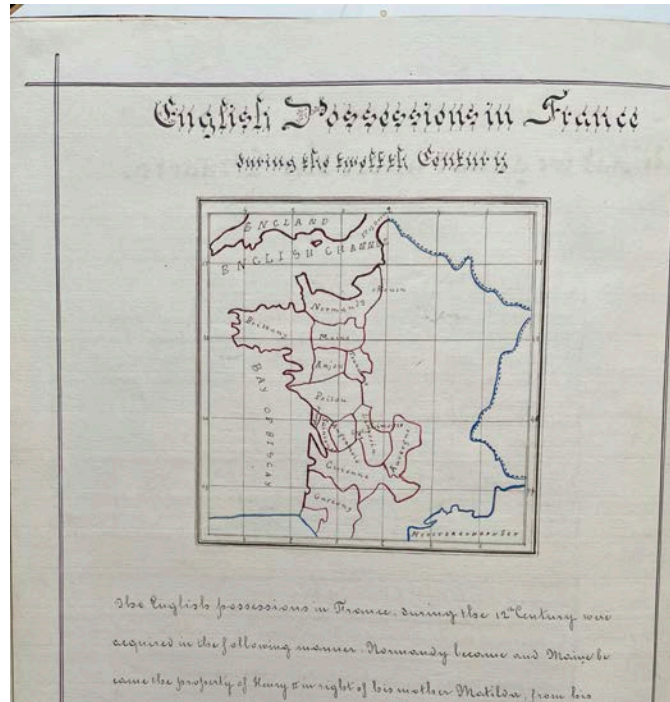 English Possessions in France
during the twelfth Century
ENGLAND
ENGLISH CHANNEL
Rouen
Normandy
Brittany
Maine
Anjou
Poitou
BAY OF BISCAY
Auvergne
Guienne
Gascony
MEDITERRANEAN SEA
The English possessions in France, during the 12th Century were
acquired in the following manner. Normandy became and Maine be
came the property of Henry II in right of his mother Matilda, from his